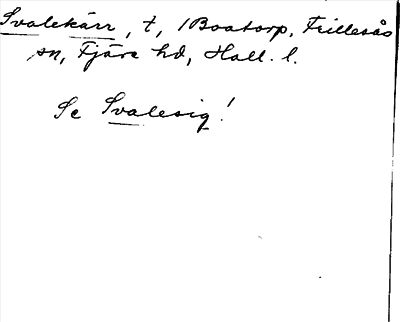 Svalekärr, t, /Boatorp, Frillesås
sn, Fjäre hd, Hall. l.
Se Svalesig!